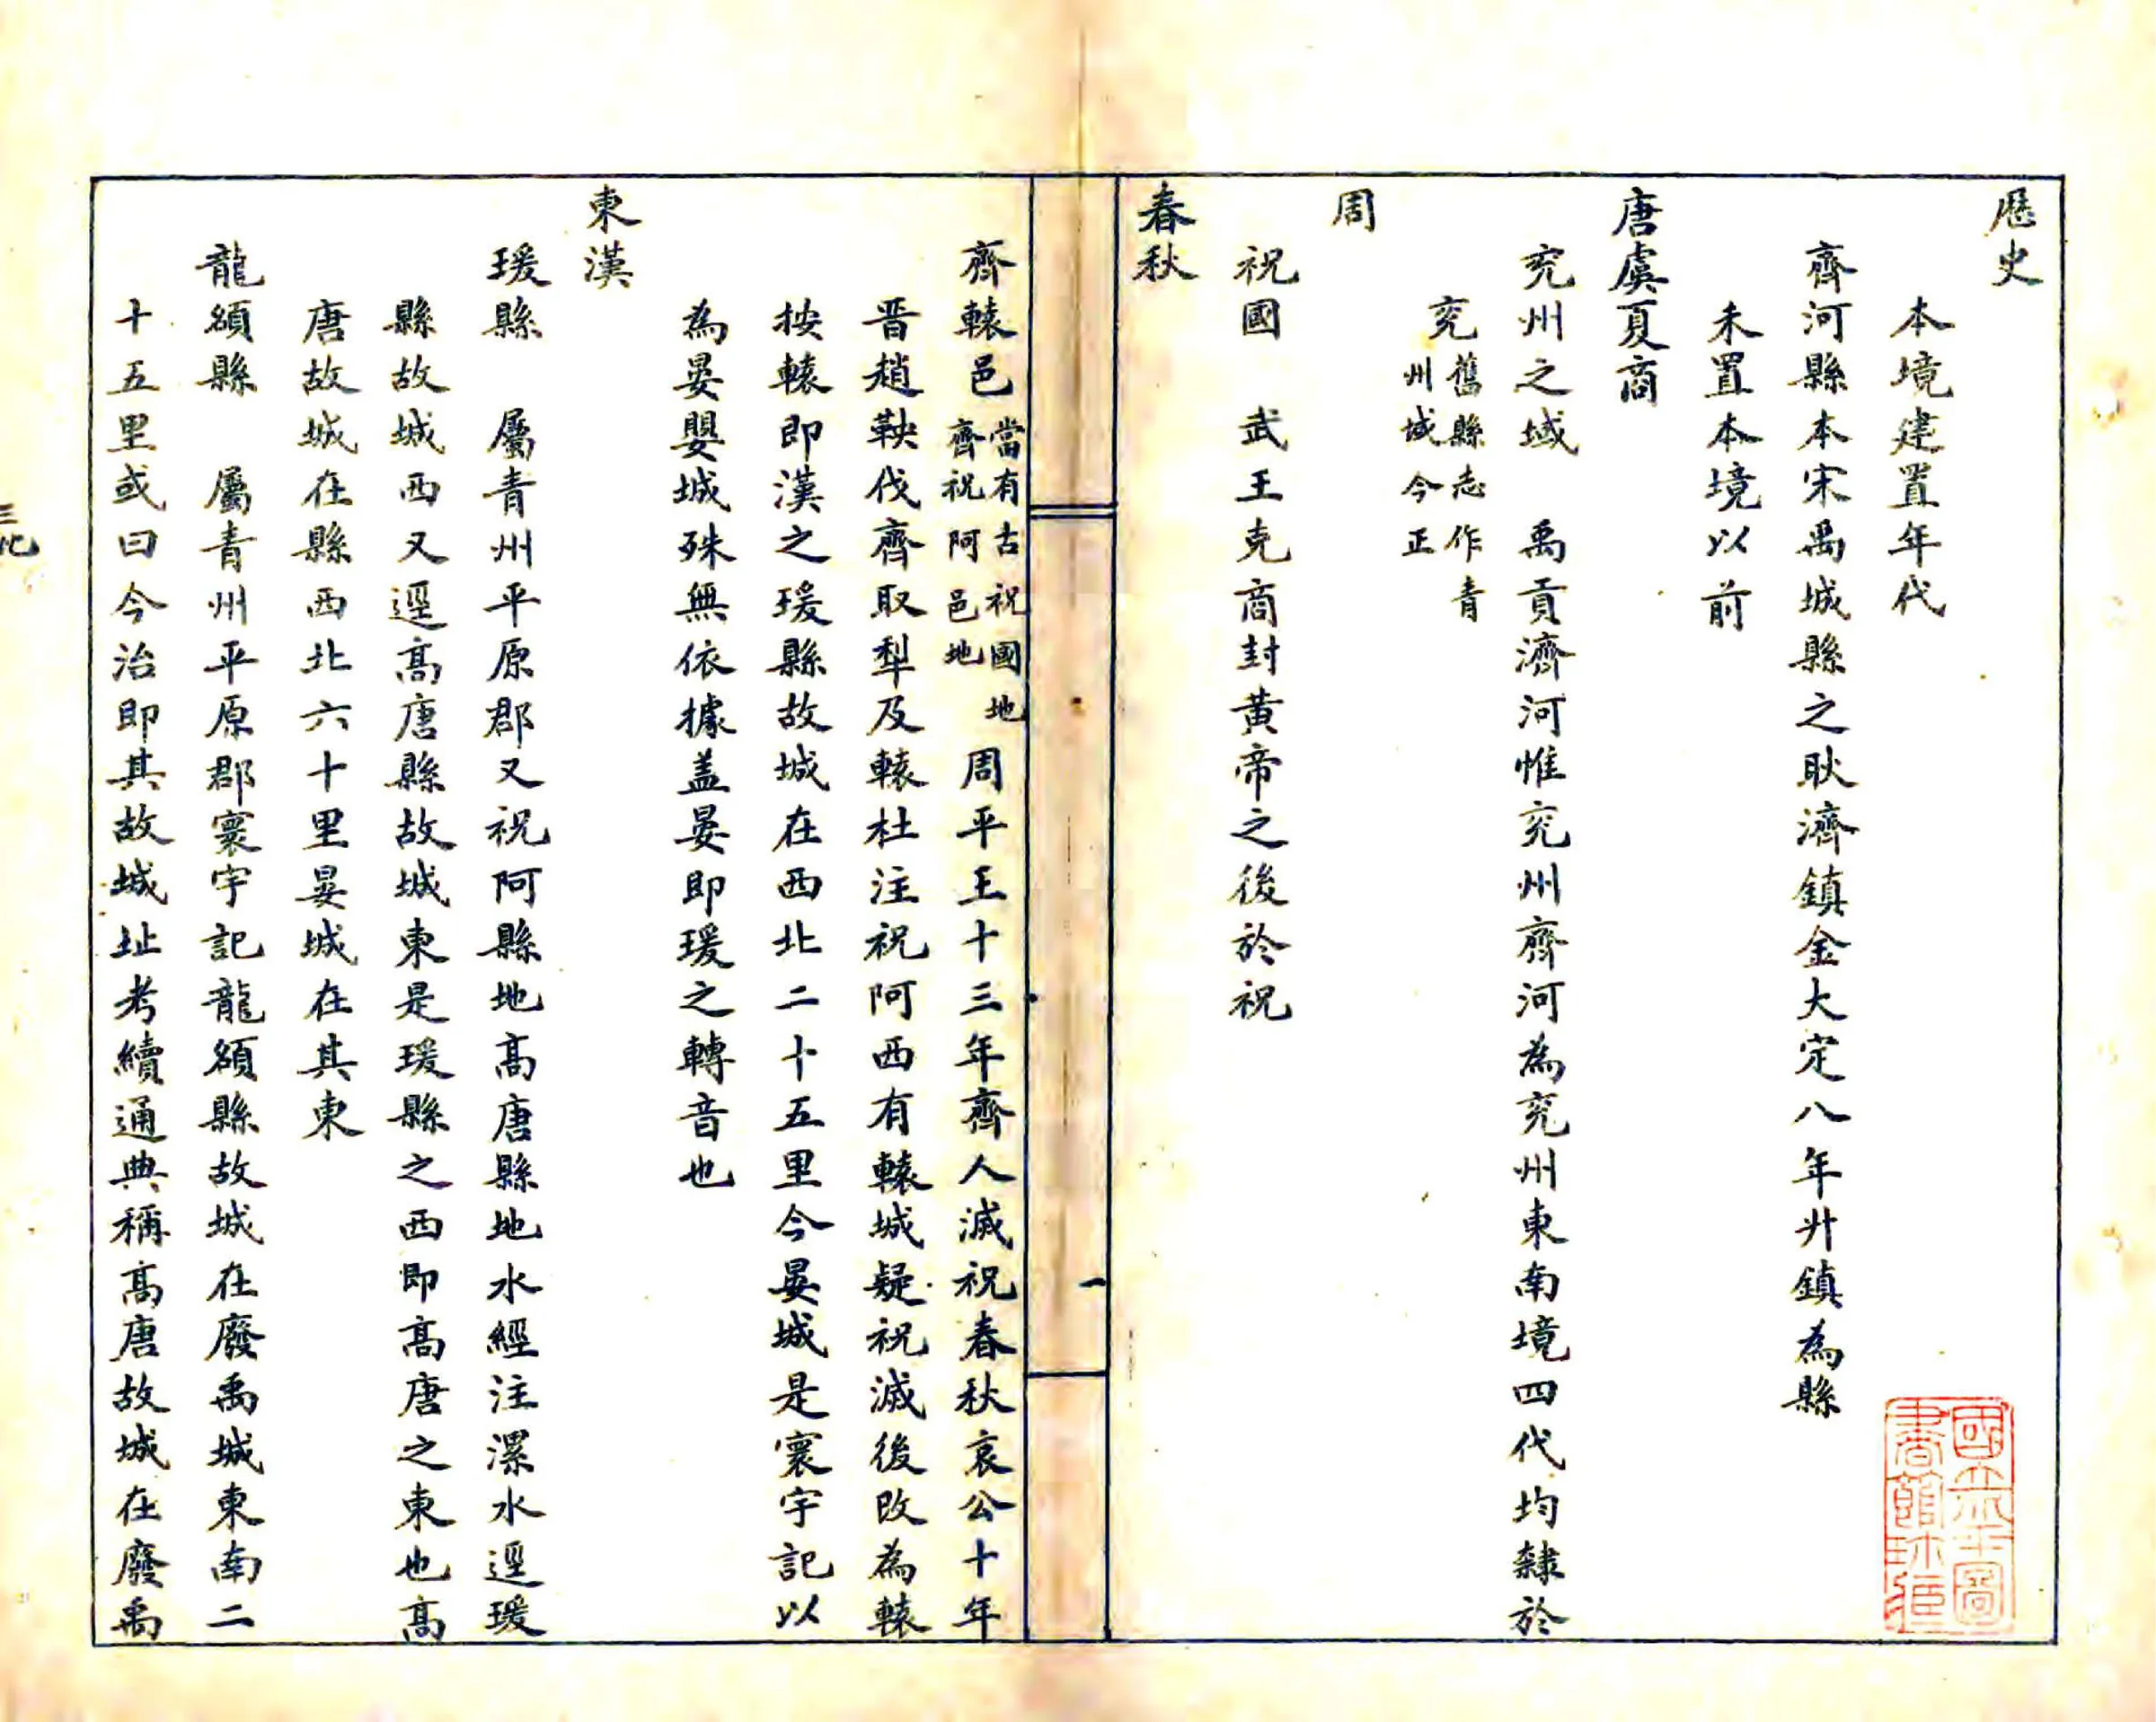 歷史
本境建置年代
齊河縣本宋禹城縣之耿濟鎮金大定八年升鎮為縣
未置本境以前
唐虞夏商
兖州之域　禹貢濟河惟兖州齊河為兖州東南境四代均隸於
兖舊縣志作青
州域今正
周
祝國　武王克商封黄帝之後於祝
春秋
齊轅邑當有古祝國地
齊祝阿邑地
周平王十三年齊人滅祝春秋哀公十年
晋趙鞅伐齊取犁及轅杜注祝阿西有轅城疑祝滅後改為轅
按轅即漢之瑗縣故城在西北二十五里今晏城是寰宇記以
為晏嬰城殊無依據盖晏即瑗之轉音也
東漢
瑗縣　屬青州平原郡又祝阿縣地高唐縣地水經注漯水逕瑗
縣故城西又逕高唐縣故城東是瑗縣之西即高唐之東也高
唐故城在縣西北六十里晏城在其東
龍頟縣　屬青州平原郡寰宇記龍頟縣故城在廢禹城東南二
十五里或曰今治即其故城址考續通典稱高唐故城在廢禹
一
國立北平圖
書館珍藏